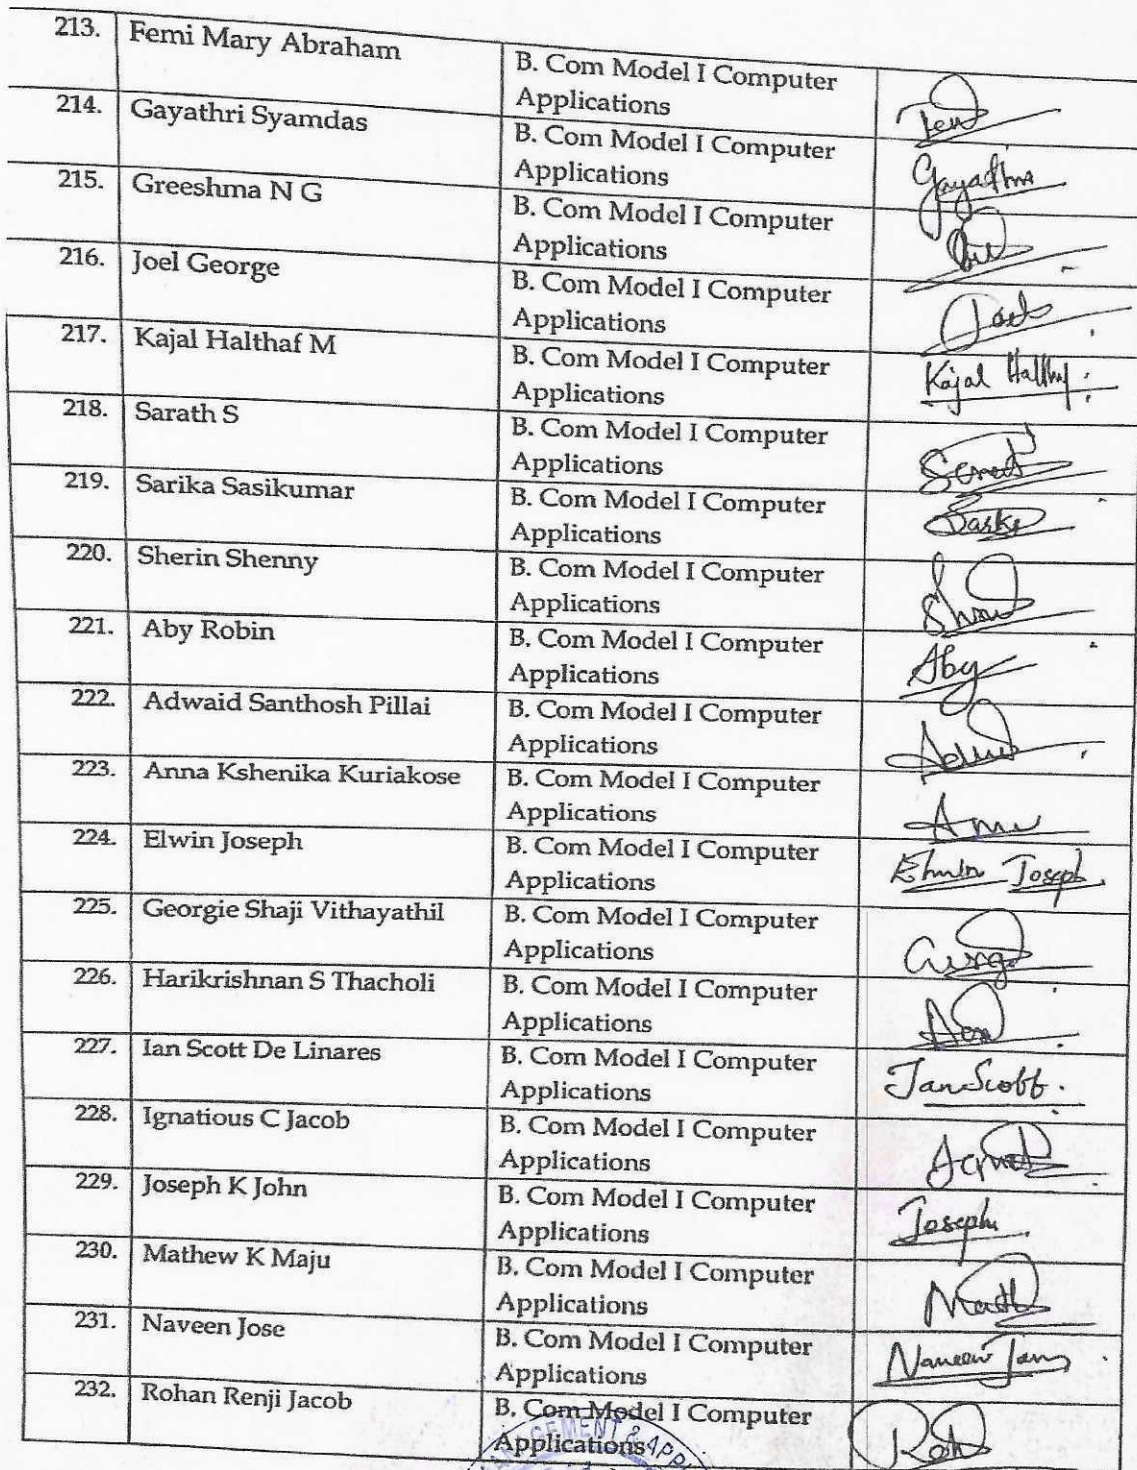 213. Femi Mary Abraham B. Com Model I Computer
Applications
214. Gayathri Syamdas B. Com Model I Computer
Applications Gayathri
215. Greeshma N G B. Com Model I Computer
Applications
216. Joel George B. Com Model I Computer
Applications
217. Kajal Halthaf M B. Com Model I Computer
Applications Kajal
218. Sarath S B. Com Model I Computer
Applications
219. Sarika Sasikumar B. Com Model I Computer
Applications
220. Sherin Shenny B. Com Model I Computer
Applications
221. Aby Robin B. Com Model I Computer
Applications Aby
222. Adwaid Santhosh Pillai B. Com Model I Computer
Applications
223. Anna Kshenika Kuriakose B. Com Model I Computer
Applications
224. Elwin Joseph B. Com Model I Computer
Applications Elwin Joseph
225. Georgie Shaji Vithayathil B. Com Model I Computer
Applications
226. Harikrishnan S Thacholi B. Com Model I Computer
Applications
227. Ian Scott De Linares B. Com Model I Computer
Applications Ian Scott.
228. Ignatious C Jacob B. Com Model I Computer
Applications
229. Joseph K John B. Com Model I Computer
Applications Joseph
230. Mathew K Maju B. Com Model I Computer
Applications
231. Naveen Jose B. Com Model I Computer
Applications Naveen
232. Rohan Renji Jacob B. Com Model I Computer
Applications